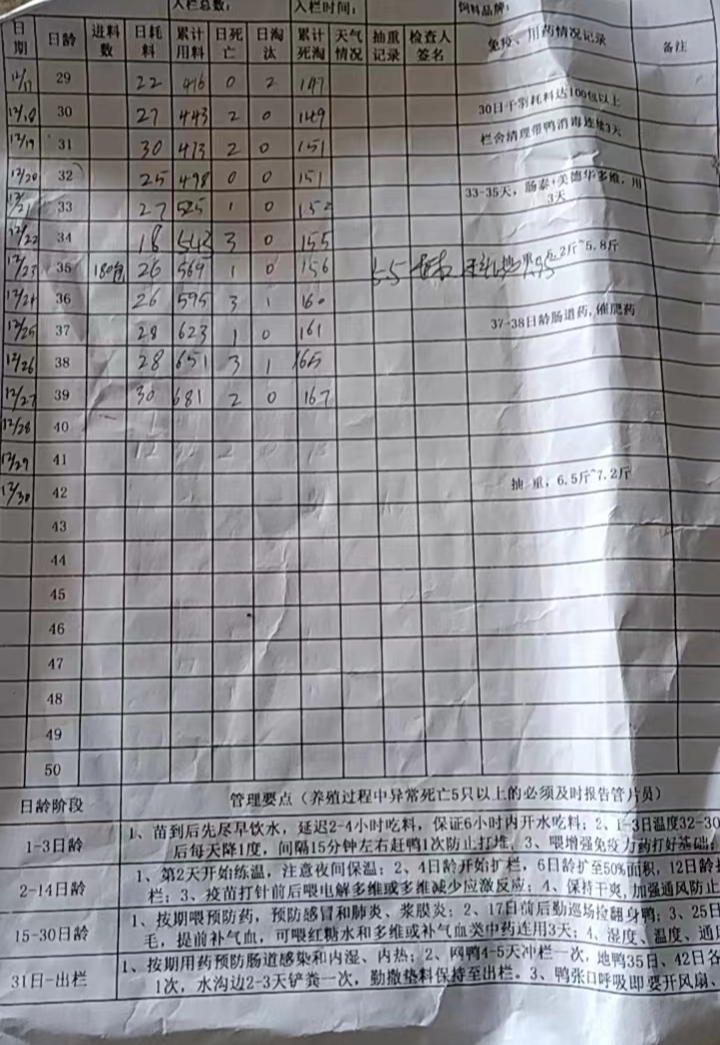 入栏总数： 入栏时间： 饲料品牌：
日期 日龄 进料数 日耗料 累计用料 日死亡 日淘汰 累计死淘 天气情况 抽重记录 检查人签名 免疫、用药情况记录 备注
12/17 29 22 416 0 2 147
12/18 30 27 443 2 0 149 30日千羽耗料达100包以上
12/19 31 30 473 2 0 151 栏舍清理带鸭消毒连续3天
12/20 32 25 498 0 0 151
12/21 33 27 525 1 0 152 33-35天，肠泰+美德华多维，用3天
12/22 34 18 543 3 0 155
12/23 35 180包 26 569 1 0 156 5.2斤~5.8斤
12/24 36 26 595 3 1 160
12/25 37 28 623 1 0 161 37-38日龄肠道药，催肥药
12/26 38 28 651 3 1 165
12/27 39 30 681 2 0 167
12/28 40
12/29 41
12/30 42 抽 重，6.5斤~7.2斤
43
44
45
46
47
48
49
50
日龄阶段 管理要点（养殖过程中异常死亡5只以上的必须及时报告管片员）
1-3日龄 1、苗到后先尽早饮水，延迟2-4小时吃料，保证6小时内开水吃料；2、1-3日温度32-30
后每天降1度，间隔15分钟左右赶鸭1次防止打堆。3、喂增强免疫力药打好基础；
2-14日龄 1、第2天开始练温，注意夜间保温；2、4日龄开始扩栏，6日龄扩至50%面积，12日龄
栏；3、疫苗打针前后喂电解多维或多维减少应激反应；4、保持干爽，加强通风防止
15-30日龄 1、按期喂预防药，预防感冒和肺炎、浆膜炎；2、17日前后勤巡场捡翻身鸭；3、25日
毛，提前补气血，可喂红糖水和多维或补气血类中药连用3天；4、湿度、温度、通
31日-出栏 1、按期用药预防肠道感染和内湿、内热；2、网鸭4-5天冲栏一次，地鸭35日、42日各
1次，水沟边2-3天铲粪一次，勤撒垫料保持至出栏。3、鸭张口呼吸即要开风扇、